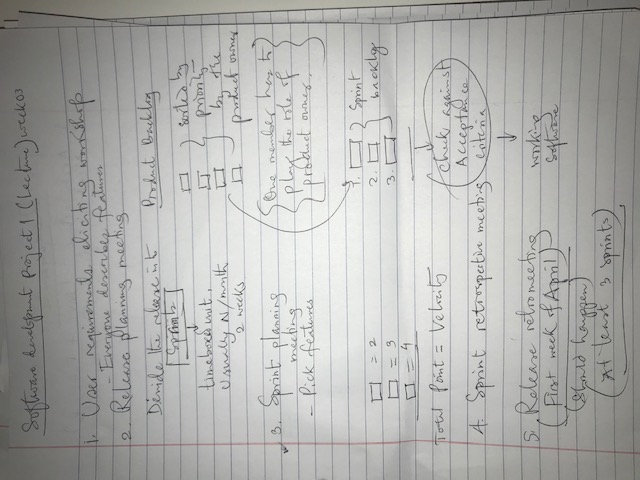 Software development Project 1 (Lecture) week 03
1. User requirements eliciting workshop
- Everyone describes features
2. Release planning meeting
Devide the release into
Sprints
timeboxed unit.
Usually N/month
2 weeks
Product Backlog
sorted by
priority
by the
product owner
One member has to
play the role of
product owner.
3. Sprint planning
meeting
- Pick features
1.
2.
3.
Sprint
backlog
= 2
= 3
= 4
Total Point = Velocity
check against
Acceptance
criteria
working
software
4. Sprint retrospective meeting
5. Release retromeeting
(First week of April)
(Should happen)
(At least 3 sprints)